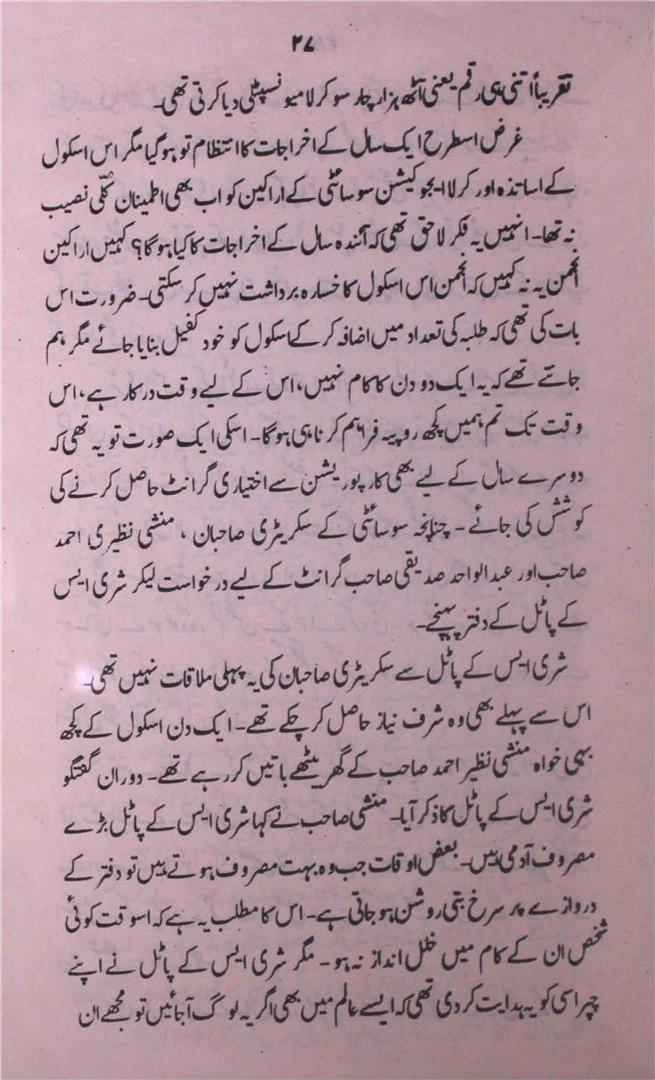 ۲۷
تقریباً اتنی ہی رقم یعنی آٹھ ہزار چار سو کرلا میونسپلٹی دیا کرتی تھی۔
غرض اسطرح ایک سال کے اخراجات کا انتظام تو ہو گیا مگر اس اسکول
کے اساتذہ اور کرلا ایجوکیشن سوسائٹی کے اراکین کو اب بھی اطمینان کلّی نصیب
نہ تھا۔ انہیں یہ فکر لاحق تھی کہ آئندہ سال کے اخراجات کا کیا ہوگا؟ کہیں اراکین
انجمن یہ نہ کہیں کہ انجمن اس اسکول کا خسارہ برداشت نہیں کر سکتی۔ ضرورت اس
بات کی تھی کہ طلبہ کی تعداد میں اضافہ کر کے اسکول کو خود کفیل بنایا جائے مگر ہم
جانتے تھے کہ یہ ایک دو دن کا کام نہیں، اس کے لیے وقت درکار ہے، اس
وقت تک تم ہمیں کچھ روپیہ فراہم کرنا ہی ہوگا۔ اسکی ایک صورت تو یہ تھی کہ
دوسرے سال کے لیے بھی کارپوریشن سے اختیاری گرانٹ حاصل کرنے کی
کوشش کی جائے۔ چنانچہ سوسائٹی کے سکریٹری صاحبان، منشی نظیری احمد
صاحب اور عبدالواحد صدیقی صاحب گرانٹ کے لیے درخواست لیکر شری ایس
کے پاٹل کے دفتر پہنچے۔
شری ایس کے پاٹل سے سکریٹری صاحبان کی یہ پہلی ملاقات نہیں تھی۔
اس سے پہلے بھی وہ شرف نیاز حاصل کر چکے تھے۔ ایک دن اسکول کے کچھ
بہی خواہ منشی نظیر احمد صاحب کے گھر بیٹھے باتیں کر رہے تھے۔ دوران گفتگو
شری ایس کے پاٹل کا ذکر آیا۔ منشی صاحب نے کہا شری ایس کے پاٹل بڑے
مصروف آدمی ہیں۔ بعض اوقات جب وہ بہت مصروف ہوتے ہیں تو دفتر کے
دروازے پر سرخ بتی روشن ہو جاتی ہے۔ اس کا مطلب یہ ہے کہ اسوقت کوئی
شخص ان کے کام میں خلل انداز نہ ہو۔ مگر شری ایس کے پاٹل نے اپنے
چپراسی کو یہ ہدایت کر دی تھی کہ ایسے عالم میں بھی اگر یہ لوگ آجائیں تو مجھے ان